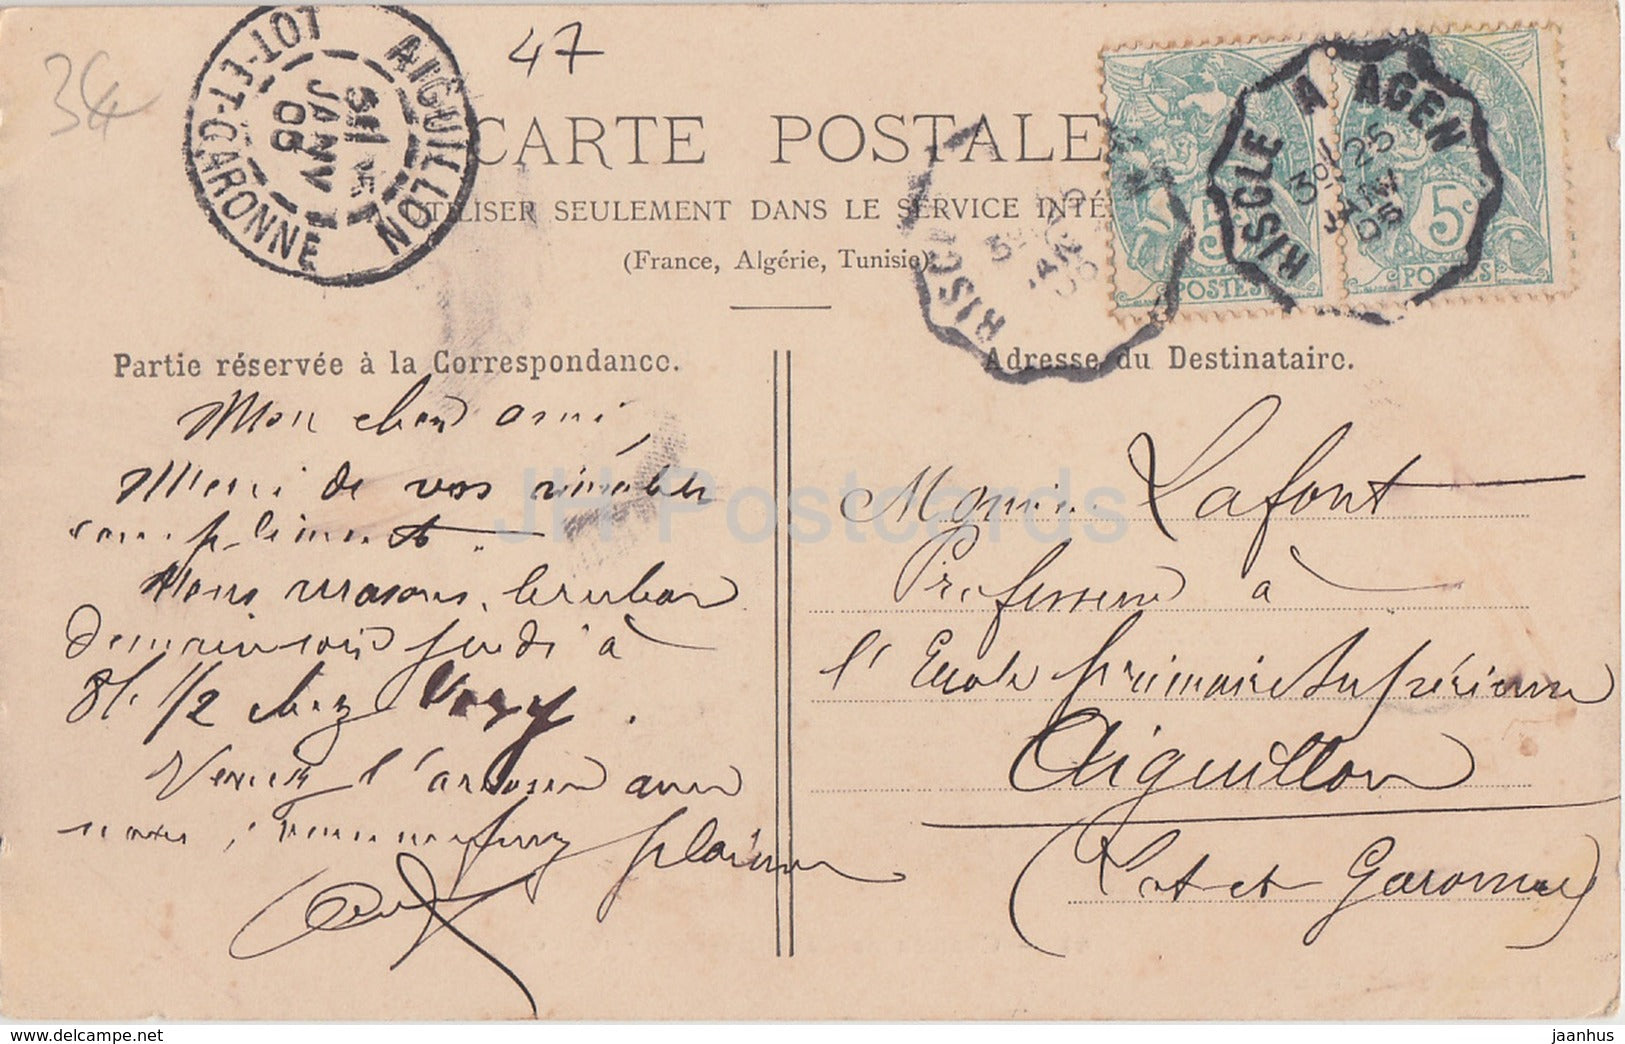 47
34
AIGUILLON
LOT-ET-GARONNE
JANV
05
CARTE POSTALE
UTILISER SEULEMENT DANS LE SERVICE INTÉ
(France, Algérie, Tunisie)
RISCLE A AGEN
3º
25
JANV
05
5c
POSTES
5c
POSTES
Partie réservée à la Correspondance.
Adresse du Destinataire.
Mon cher ami,
Merci de vos aimables
compliments.
Nous
Demain soir jeudi à
8h 1/2 chez
Venez l'arroser avec
nous, vous nous ferez plaisir
Monsieur Lafont
Professeur à
l'École primaire Supérieure
Aiguillon
(Lot et Garonne)
JH Postcards
www.delcampe.net
jaanhus